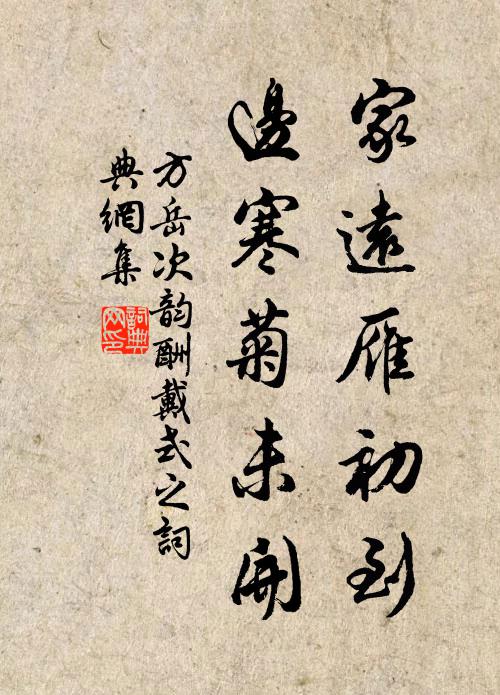 家遠雁初到
邊寒菊未開
方岳次韵酬戴式之詞
典網集
詞典網印